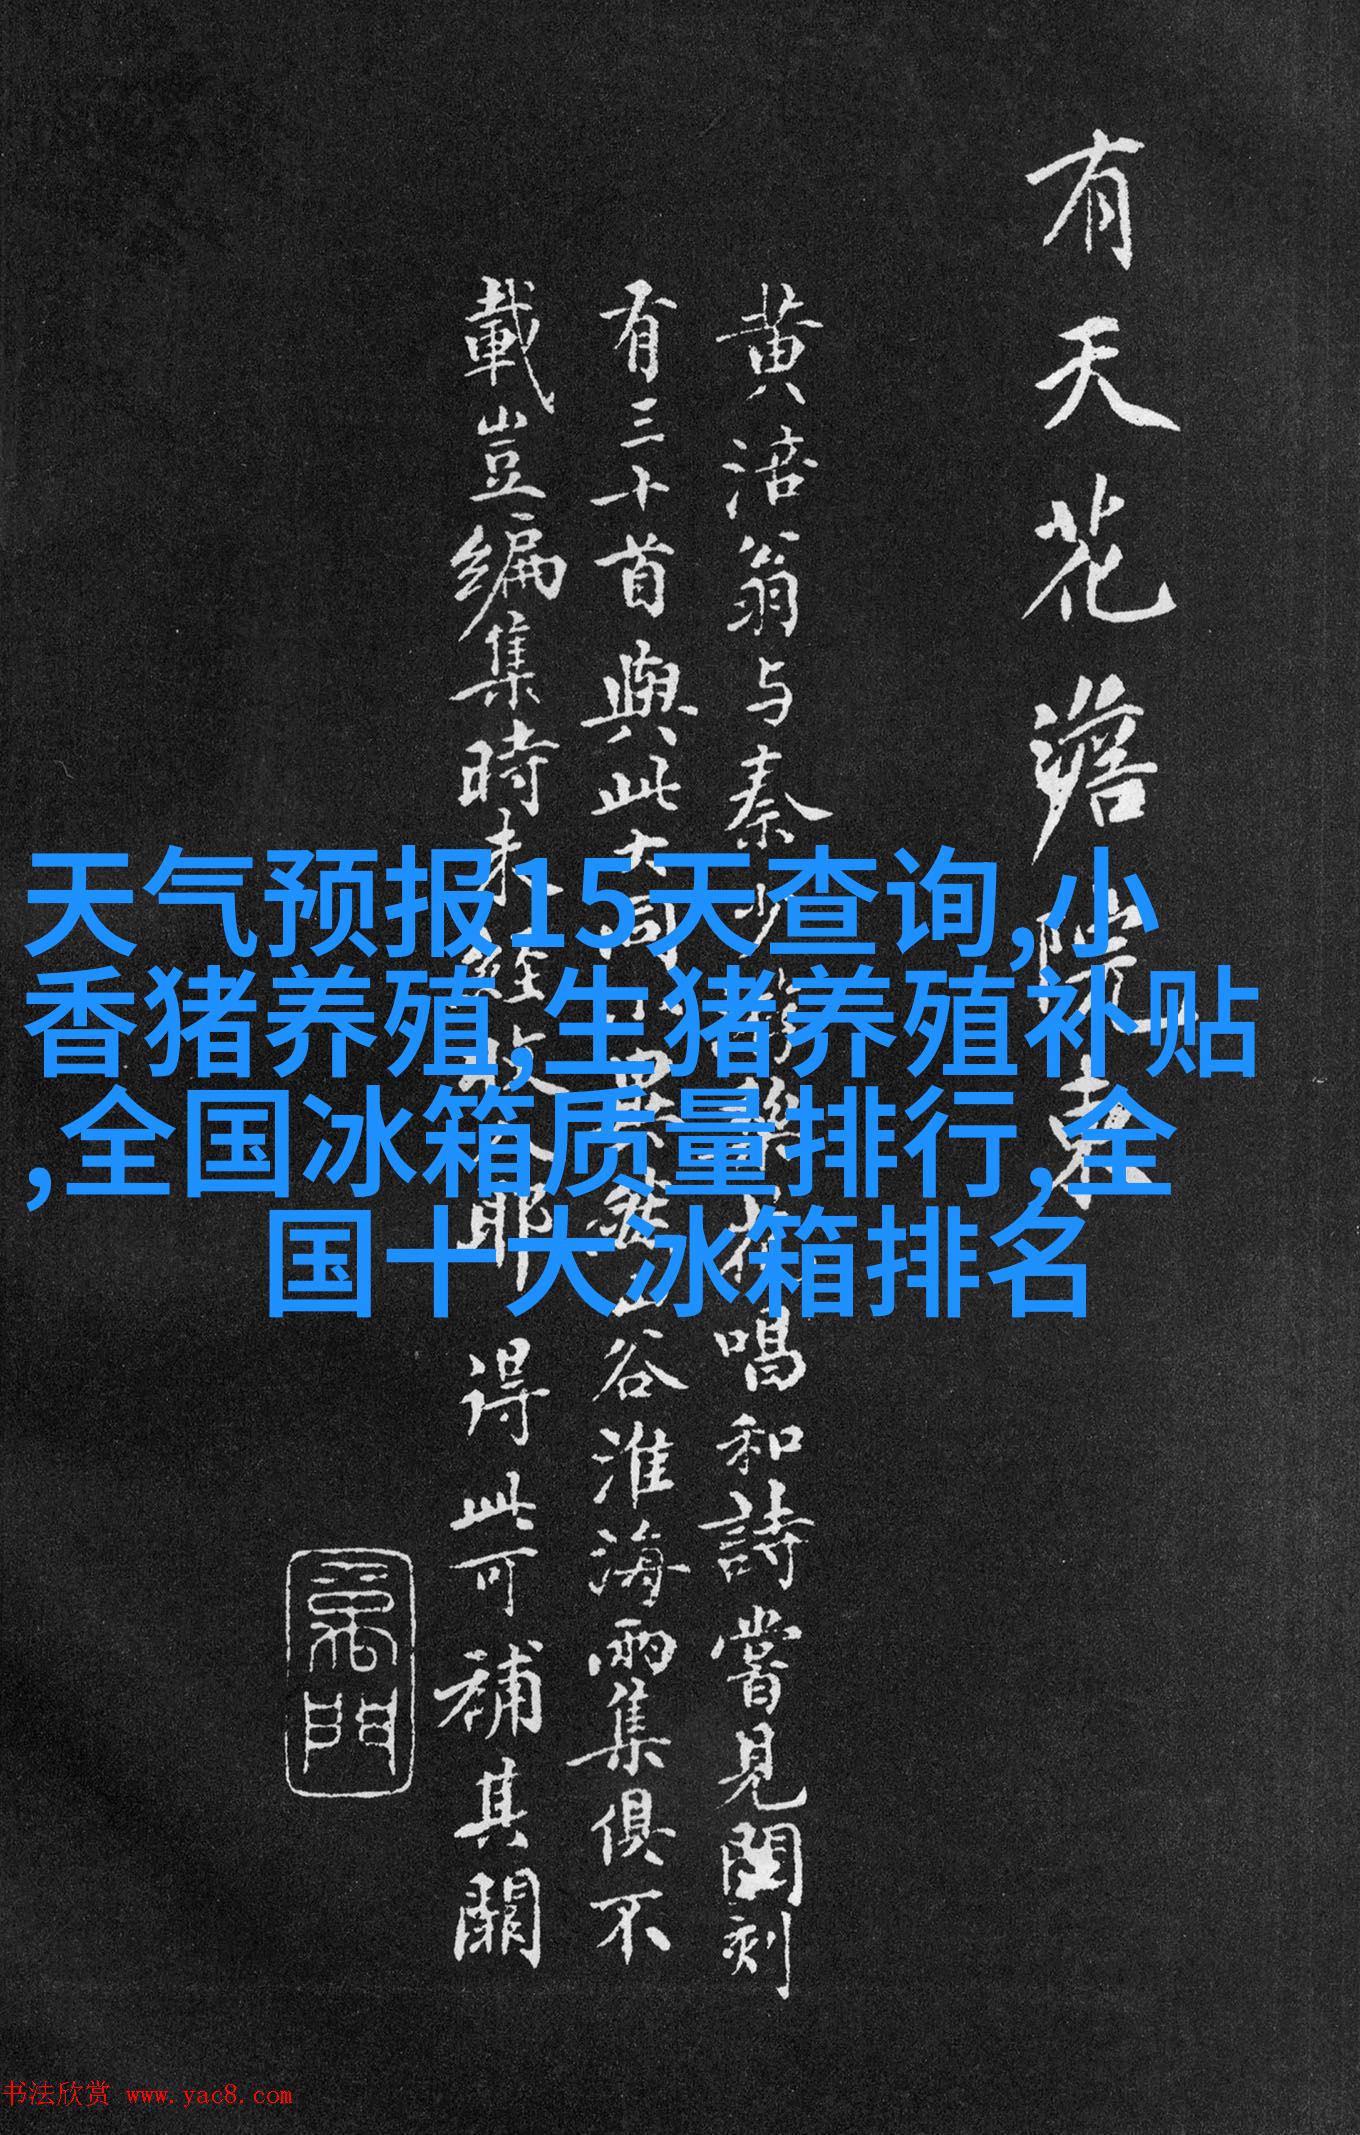 有天花澹院東
黄涪翁与秦少游
唱和詩嘗見閣刻
有三十首與此大同小異然山谷淮海兩集俱不
載豈編集時未經收入耶得此可補其闕
天气预报15天查询,小
香猪养殖,生猪养殖补贴
,全国冰箱质量排行,全
国十大冰箱排名
书法欣赏 www.yac8.com